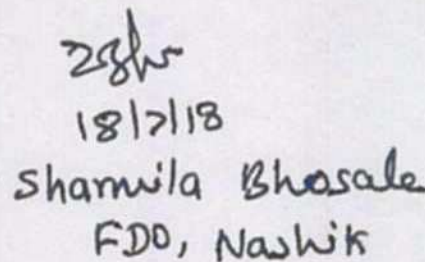 18/7/18
Sharmila Bhosale
FDO, Nashik